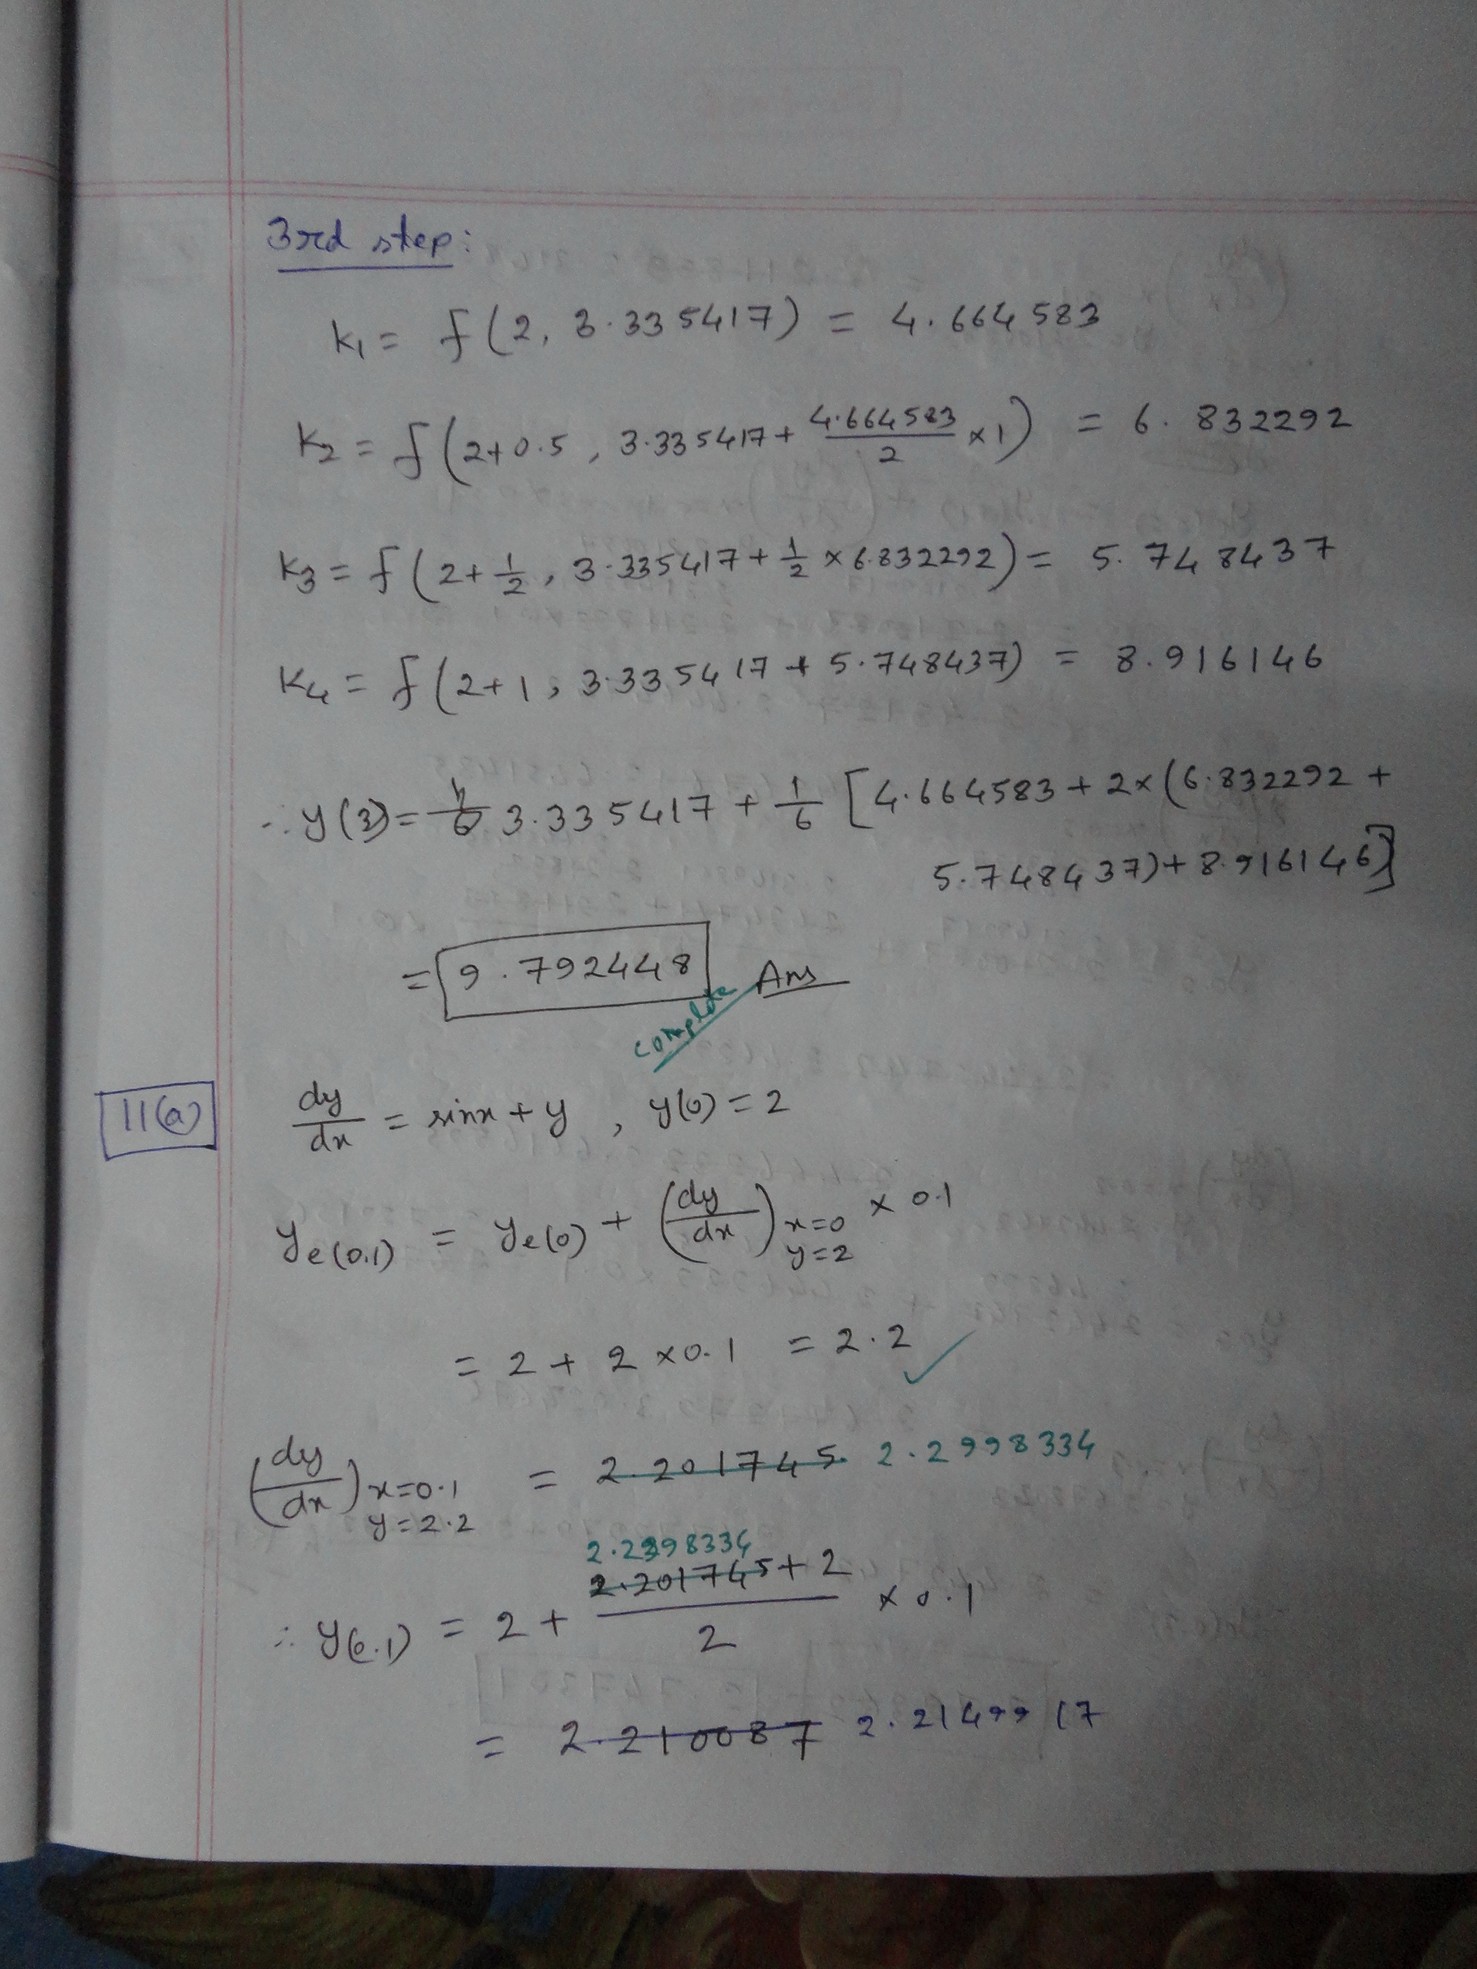 3rd step:
K₁ = f(2, 3.335417) = 4.664583
K₂ = f(2+0.5, 3.335417 + 4.664583/2 × 1) = 6.832292
K₃ = f(2+1/2, 3.335417 + 1/2 × 6.832292) = 5.748437
K₄ = f(2+1, 3.335417 + 5.748437) = 8.916146
∴ y(3) = 3.335417 + 1/6 [4.664583 + 2×(6.832292 +
5.748437) + 8.916146]
= 9.792448 Ans
complete
11(a) dy/dx = sinx + y , y(0) = 2
ye(0.1) = ye(0) + (dy/dx) x=0 y=2 × 0.1
= 2 + 2 × 0.1 = 2.2 ✓
(dy/dx) x=0.1 y=2.2 = 2.201745 2.2998334
2.2998334
∴ y(0.1) = 2 + (2.201745 + 2)/2 × 0.1
= 2.210087 2.2149917